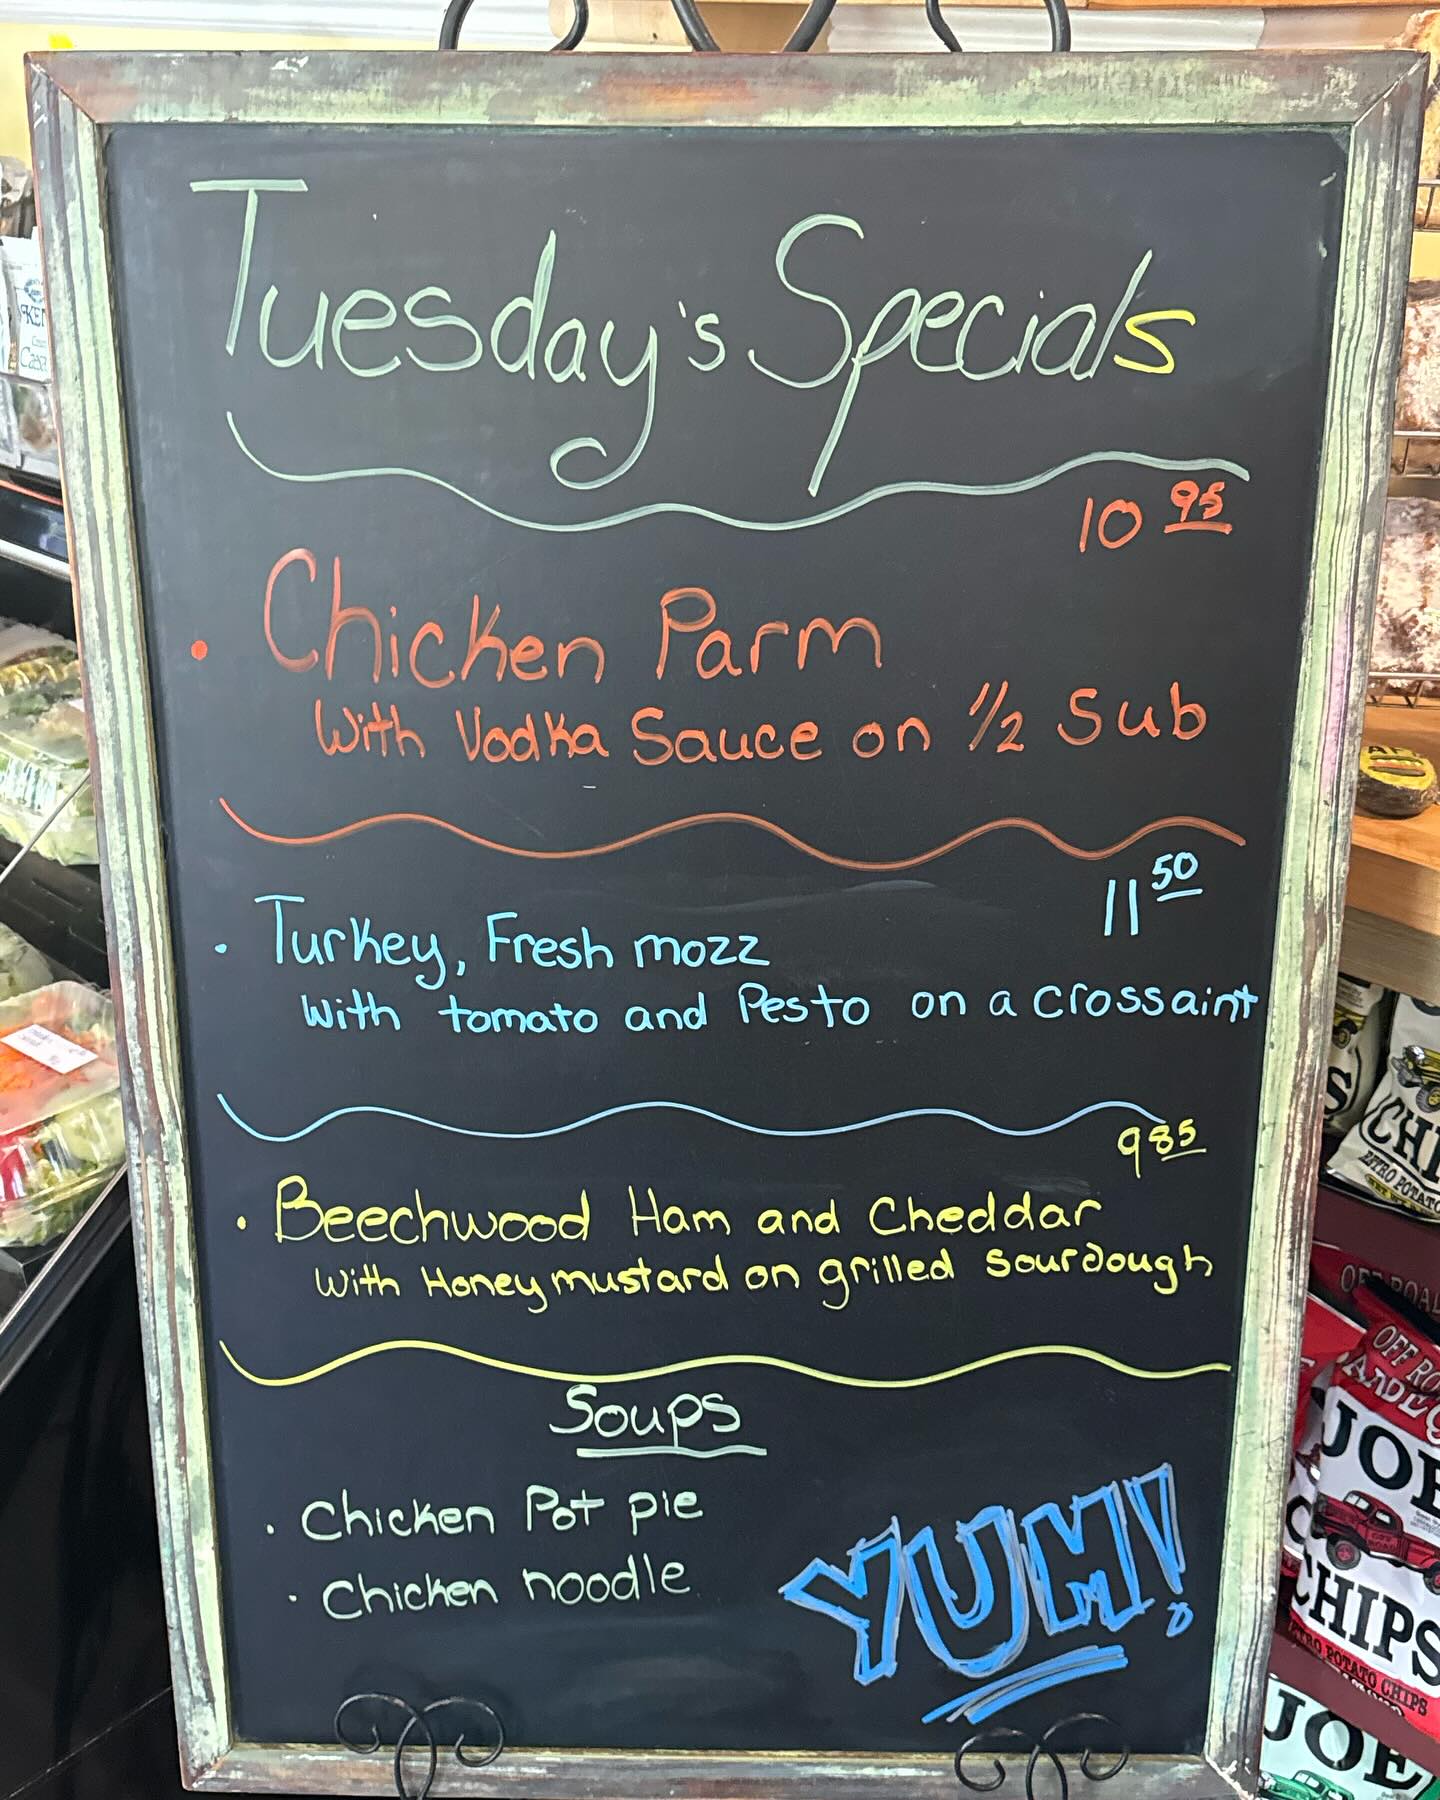 Tuesday's Specials
10 95
• Chicken Parm
With Vodka Sauce on 1/2 Sub
11 50
• Turkey, Fresh mozz
With tomato and Pesto on a crossaint
9 85
• Beechwood Ham and Cheddar
With Honey mustard on grilled Sourdough
Soups
• Chicken Pot pie
• Chicken noodle
YUM!
OFF ROAD
JOE
CHIPS
POTATO CHIPS
JOE